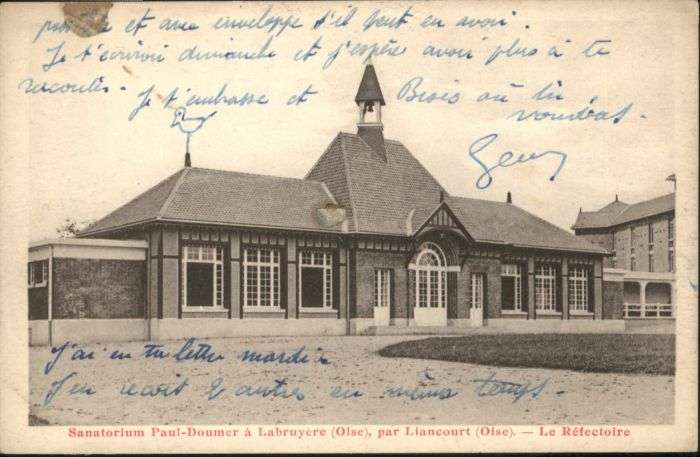 et avec enveloppe s'il peut en avoir.
Je t'écrirai dimanche et j'espère avoir plus à te
raconter. Je t'embrasse et Bisis où tu
voudras.
J'ai eu ta lettre mardi
J'en reçoit 2 autres en même temps.
Sanatorium Paul-Doumer à Labruyère (Oise), par Liancourt (Oise). — Le Réfectoire